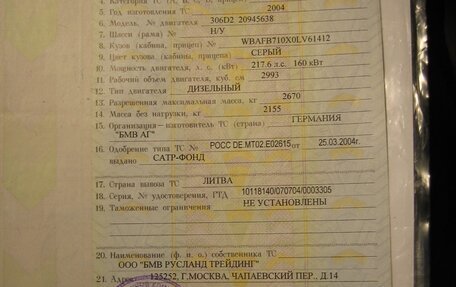 4. Категория ТС (A, B, C, D, прицеп)
5. Год изготовления ТС 2004
6. Модель, № двигателя 306D2 20945638
7. Шасси (рама) № Н/У
8. Кузов (кабина, прицеп) № WBAFB710X0LV61412
9. Цвет кузова (кабины, прицепа) СЕРЫЙ
10. Мощность двигателя, л. с. (кВт) 217.6 л.с. 160 кВт
11. Рабочий объем двигателя, куб. см 2993
12. Тип двигателя ДИЗЕЛЬНЫЙ
13. Разрешенная максимальная масса, кг 2670
14. Масса без нагрузки, кг 2155
15. Организация-изготовитель ТС (страна) ГЕРМАНИЯ
"БМВ АГ"
16. Одобрение типа ТС № РОСС DE.МТ02.Е02615 от 25.03.2004г.
выдано САТР-ФОНД
17. Страна вывоза ТС ЛИТВА
18. Серия, № удостоверения, ГТД 10118140/070704/0003305
19. Таможенные ограничения НЕ УСТАНОВЛЕНЫ
20. Наименование (ф. и. о.) собственника ТС
ООО "БМВ РУСЛАНД ТРЕЙДИНГ"
21. Адрес 125252, Г.МОСКВА, ЧАПАЕВСКИЙ ПЕР., Д.14